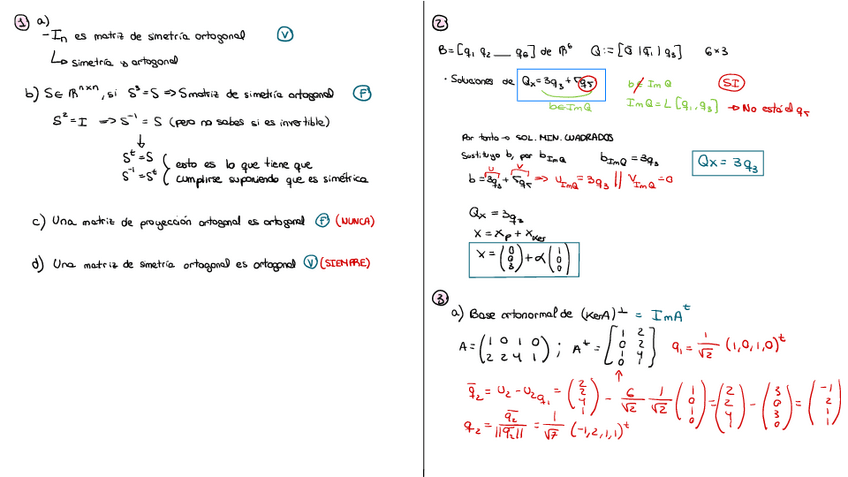 1 a)
- In es matriz de simetría ortogonal V
↳ simetría y ortogonal
b) S ∈ ℝ^{n×n}, si S³ = S ⟹ S matriz de simetría ortogonal F
S² = I ⟹ S⁻¹ = S (pero no sabes si es invertible)
↓
Sᵗ = S
S⁻¹ = Sᵗ
{ esto es lo que tiene que
cumplirse suponiendo que es simétrica
c) Una matriz de proyección ortogonal es ortogonal F (NUNCA)
d) Una matriz de simetría ortogonal es ortogonal V (SIEMPRE)
2
B = [q₁ q₂ __ q₆] de ℝ⁶ Q := [0̄ | q₁ | q₃] 6×3
· Soluciones de Qx = 3q₃ + 5q₅ b ∉ Im Q SI
b ∈ Im Q Im Q = L [q₁, q₃] → No está el q₅
Por tanto → SOL. MIN. CUADRADOS
Sustituyo b, por b_{ImQ} b_{ImQ} = 3q₃ Qx = 3q₃
u v
b = 3q₃ + 5q₅ ⟹ u_{ImQ} = 3q₃ || v_{ImQ} = 0
Qx = 3q₃
x = x_p + x_{Ker}
x = (0 0 3) + α (1 0 0)
3
a) Base ortonormal de (KerA)^⊥ = ImAᵗ
A = (1 0 1 0
2 2 4 1) ; Aᵗ = [1 2
0 2
1 4
0 1] q₁ = 1/√2 (1,0,1,0)ᵗ
↑
q̄₂ = u₂ - u₂q₁ = (2 2 4 1) - 6/√2 1/√2 (1 0 1 0) = (2 2 4 1) - (3 0 3 0) = (-1 2 1 1)
q₂ = q̄₂/||q̄₂|| = 1/√7 (-1,2,1,1)ᵗ